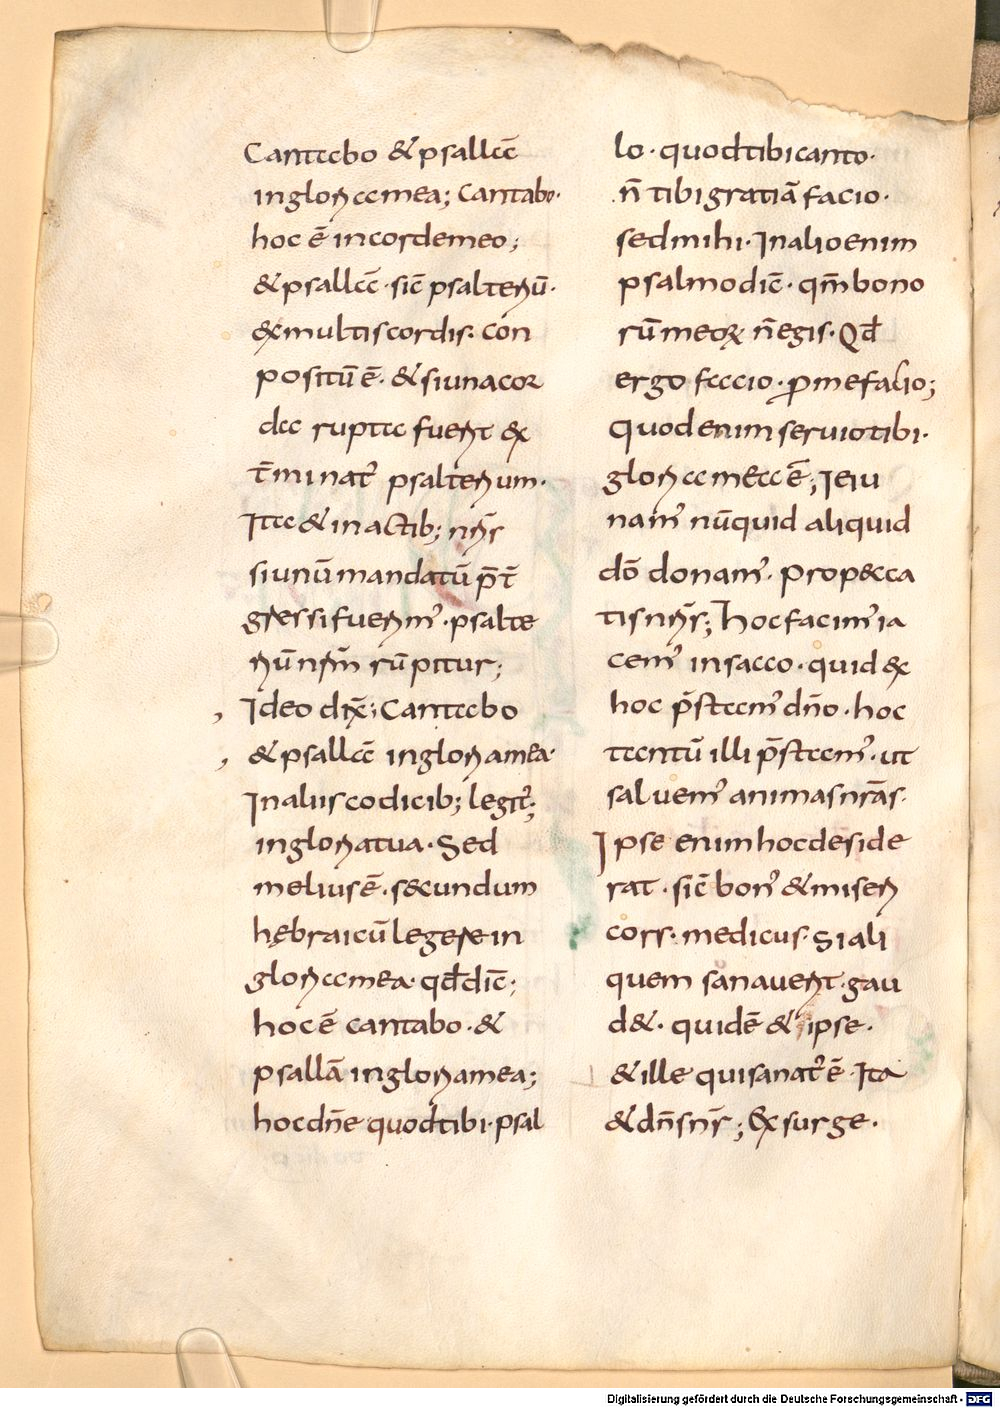 Cantabo & psallā
in gloria mea; Cantabo·
hoc ē in corde meo;
& psallā· sic̄ psalteriū·
ex multis cordis· con
positū ē· & si una cor
da rupta fuerit ex
t̄minat' psalterium·
Ita & in actib; nr̄is
si unū mandatū p̄t̄
gressi fuerim'· psalte
riū nrm̄ rūpitur;
Ideo dix̄; Cantabo
& psallā in gloria mea·
In aliis codicib; legit';
in gloria tua· Sed
melius ē· secundum
hębraicū legere in
gloria mea· qđ dic̄;
hoc ē cantabo· &
psallā in gloria mea;
hoc dn̄e quod tibi· psal
lo· quod tibi canto·
n̄ tibi gratiā facio·
sed mihi· In alio enim
psalmo dic̄· qm̄ bono
rū meoꝝ n̄ egis· Qđ
ergo facio· ꝓ me facio;
Quod enim servio tibi·
gloria mea ē; Ieiu
nam' nūquid aliquid
dō donam'· Pro pecca
tis nr̄is; Hoc facim' ia
cem' in sacco· quid ex
hoc p̄stam' dn̄o· hoc
tantū illi p̄stam'· ut
salvem' animas nrās·
Ipse enim hoc deside
rat· sic̄ bon' & miseri
cors· medicus· Si ali
quem sanaverit· gau
d&· quidē & ipse·
& ille qui sanat' ē· Ita
& dn̄s nr̄; Exsurge·
Digitalisierung gefördert durch die Deutsche Forschungsgemeinschaft - DFG